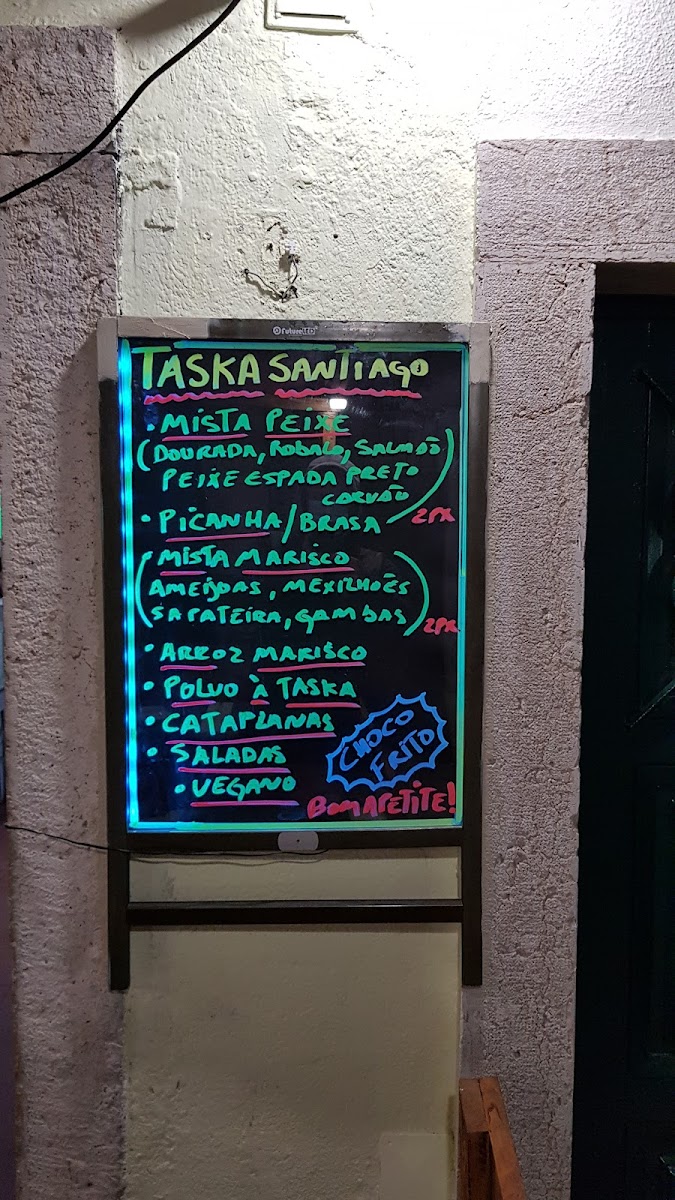 FutureLED
TASKA SANTIAGO
• MISTA PEIXE
(DOURADA, ROBALO, SALMÃO
PEIXE ESPADA PRETO
CARVÃO)
• PICANHA/BRASA 2PX
MISTA MARISCO
(AMEIJOAS, MEXILHÕES
SAPATEIRA, GAMBAS) 2PX
• ARROZ MARISCO
• POLVO À TASKA
• CATAPLANAS
• SALADAS
• VEGANO
CHOCO
FRITO
BOM APETITE!